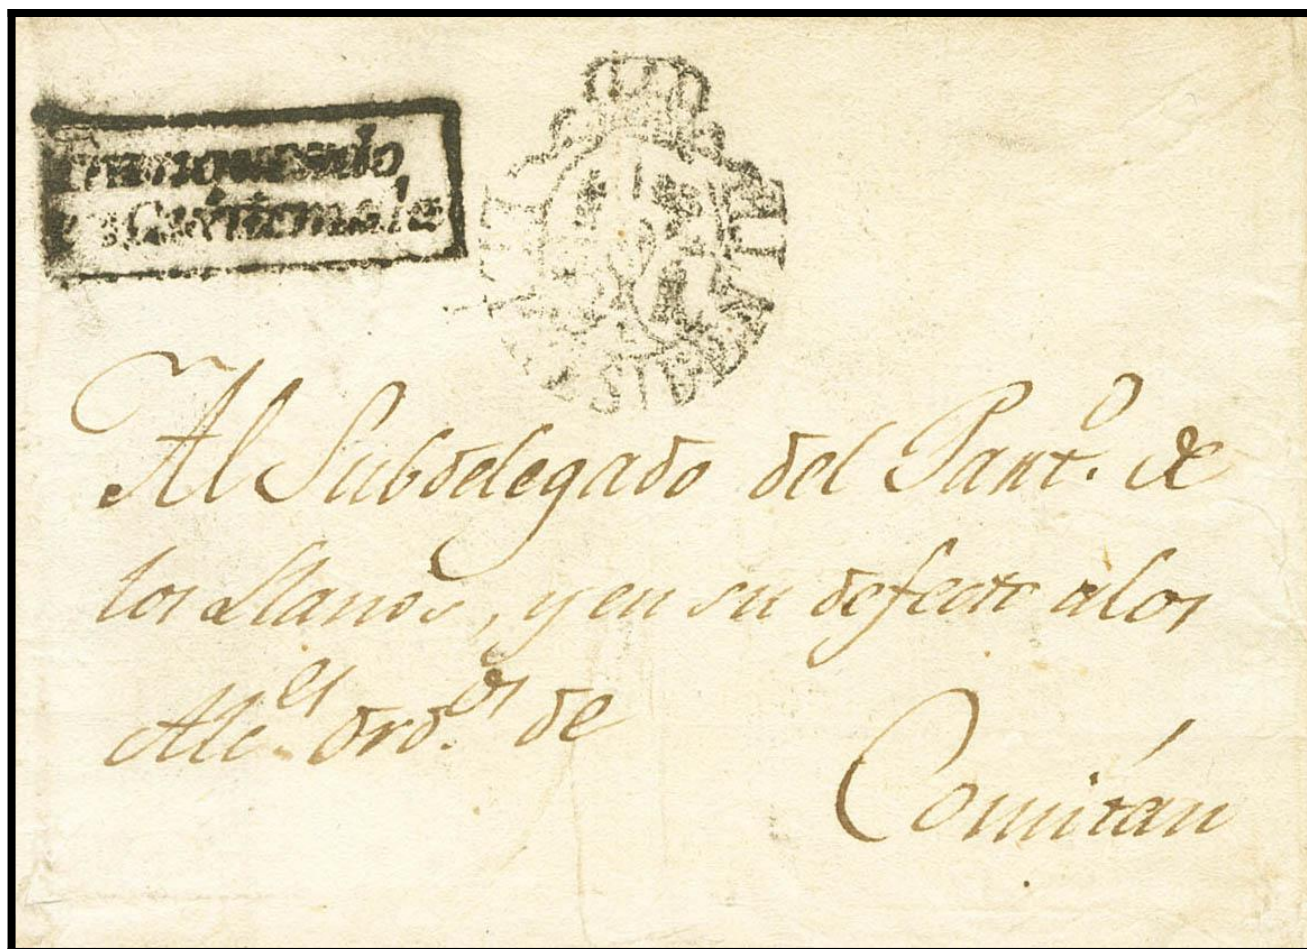 Guatemala
Al Subdelegado del Part.º de
los Llanos, y en su defecto a los
Alc.es Ord.os de
Comitán